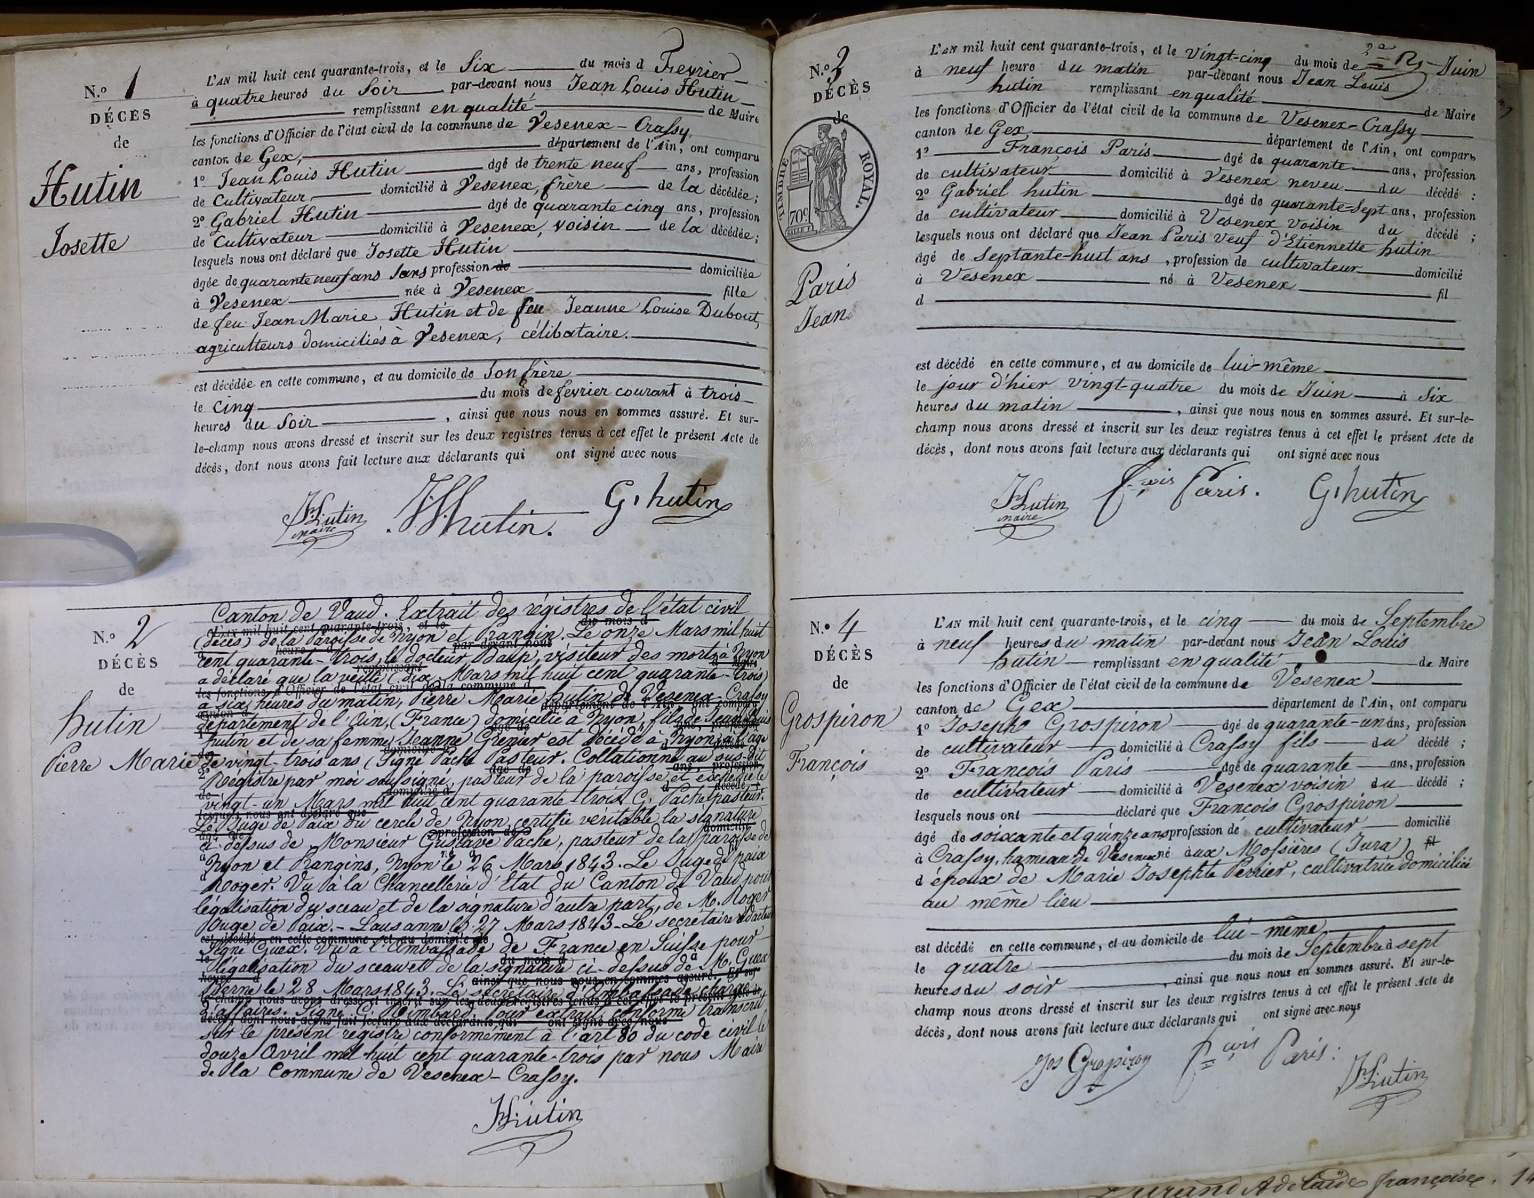 N.º 1
DÉCÈS
de
Hutin
Josette
L'AN mil huit cent quarante-trois, et le Six du mois d Fevrier
à quatre heures du Soir par-devant nous Jean Louis Hutin
remplissant en qualité de Maire
les fonctions d'Officier de l'état civil de la commune de Vesenex-Crassy,
canton de Gex, département de l'Ain, ont comparu
1º Jean Louis Hutin agé de trente neuf ans, profession
de Cultivateur domicilié à Vesenex, frère de la décédée;
2º Gabriel Hutin agé de quarante cinq ans, profession
de Cultivateur domicilié à Vesenex, voisin de la décédée;
lesquels nous ont déclaré que Josette Hutin
agée de quarante neuf ans sans profession de domiciliée
à Vesenex née à Vesenex fille
de feu Jean Marie Hutin et de feu Jeanne Louise Dubout,
agriculteurs domiciliés à Vesenex, célibataire.
est décédée en cette commune, et au domicile de Son frère
le Cinq du mois de fevrier courant à trois
heures du Soir, ainsi que nous nous en sommes assuré. Et sur-
le-champ nous avons dressé et inscrit sur les deux registres tenus à cet effet le présent Acte de
décès, dont nous avons fait lecture aux déclarants qui ont signé avec nous
Hutin
maire
hutin.
G. hutin
N.º 2
DÉCÈS
de
hutin
Pierre Marie
Canton de Vaud. Extrait des régistres de l'état civil
(décès) de la Paroisse de Nyon et Prangin. Le onze Mars mil huit
cent quarante-trois, le docteur, visiteur des morts à Nyon
a déclaré que la veille (dix Mars mil huit cent quarante-trois)
à six heures du matin, Pierre Marie hutin de Vesenex-Crassy
département de l'Ain, (France) domicilié à Nyon, fils de Jean Louis
hutin et de sa femme Jeanne Grenier est décédé à Nyon à l'age
de vingt-trois ans (Signé Pache Pasteur. Collationné au sus-dit
Régistre par moi soussigné, pasteur de la paroisse et expédié le
vingt-un Mars mil huit cent quarante-trois G. Pache pasteur.
Le Juge de Paix du cercle de Nyon, certifie veritable la signature
ci-dessus de Monsieur Gustave Pache, pasteur de la paroisse de
Nyon et Prangins, Nyon le 26 Mars 1843. Le Juge de paix
Roger. Vu à la Chancellerie d'Etat du Canton de Vaud pour
légalisation du sceau et de la signature d'autre part, de M. Roger
Juge de Paix. - Lausanne le 27 Mars 1843 - Le secrétaire
Signé Guex. Vu à l'Ambassade de France en Suisse pour
légalisation du sceau et de la signature ci-dessus de M. Guex
Berne le 28 Mars 1843. Le secrétaire d'Ambassade chargé
d'affaires. Signé C. Pour extrait conforme transcrit
sur le présent registre conformément à l'art 80 du code civil le
douze Avril mil huit cent quarante-trois par nous Maire
de la Commune de Vesenex-Crassy.
Hutin
N.º 3
DÉCÈS
de
TIMBRE ROYAL.
70c
Paris
Jean
L'AN mil huit cent quarante-trois, et le vingt-cinq du mois de Juin
à neuf heure du matin par-devant nous Jean Louis
hutin remplissant en qualité de Maire
les fonctions d'Officier de l'état civil de la commune de Vesenex-Crassy
canton de Gex département de l'Ain, ont comparu
1º François Paris agé de quarante ans, profession
de cultivateur domicilié à Vesenex neveu du décédé:
2º Gabriel hutin agé de quarante-sept ans, profession
de cultivateur domicilié à Vesenex voisin du décédé;
lesquels nous ont déclaré que Jean Paris veuf d'Etiennette hutin
agé de septante-huit ans, profession de cultivateur domicilié
à Vesenex né à Vesenex fil
d
est décédé en cette commune, et au domicile de lui-même
le jour d'hier vingt-quatre du mois de Juin à Six
heures du matin, ainsi que nous nous en sommes assuré. Et sur-le-
champ nous avons dressé et inscrit sur les deux registres tenus à cet effet le présent Acte de
décès, dont nous avons fait lecture aux déclarants qui ont signé avec nous
Hutin
maire
fçois Paris.
G. hutin
N.º 4
DÉCÈS
de
Grospiron
François
L'AN mil huit cent quarante-trois, et le cinq du mois de Septembre
à neuf heures du matin par-devant nous Jean Louis
hutin remplissant en qualité de Maire
les fonctions d'Officier de l'état civil de la commune de Vesenex
canton de Gex département de l'Ain, ont comparu
1º Joseph Grospiron agé de quarante-un ans, profession
de cultivateur domicilié à Crassy fils du décédé;
2º François Paris agé de quarante ans, profession
de cultivateur domicilié à Vesenex voisin du décédé;
lesquels nous ont déclaré que François Grospiron
agé de soixante et quinze ans profession de cultivateur domicilié
à Crassy, hameau de Vesenex né aux Mossières (Jura) fil
d époux de Marie Josephte Perrier, cultivatrice domiciliée
au même lieu
est décédé en cette commune, et au domicile de lui-même
le quatre du mois de Septembre à sept
heures du soir, ainsi que nous nous en sommes assuré. Et sur-le-
champ nous avons dressé et inscrit sur les deux registres tenus à cet effet le présent Acte de
décès, dont nous avons fait lecture aux déclarants qui ont signé avec nous
Jph Grospiron
fçois Paris.
Hutin
Durand Adelaïde françoise.